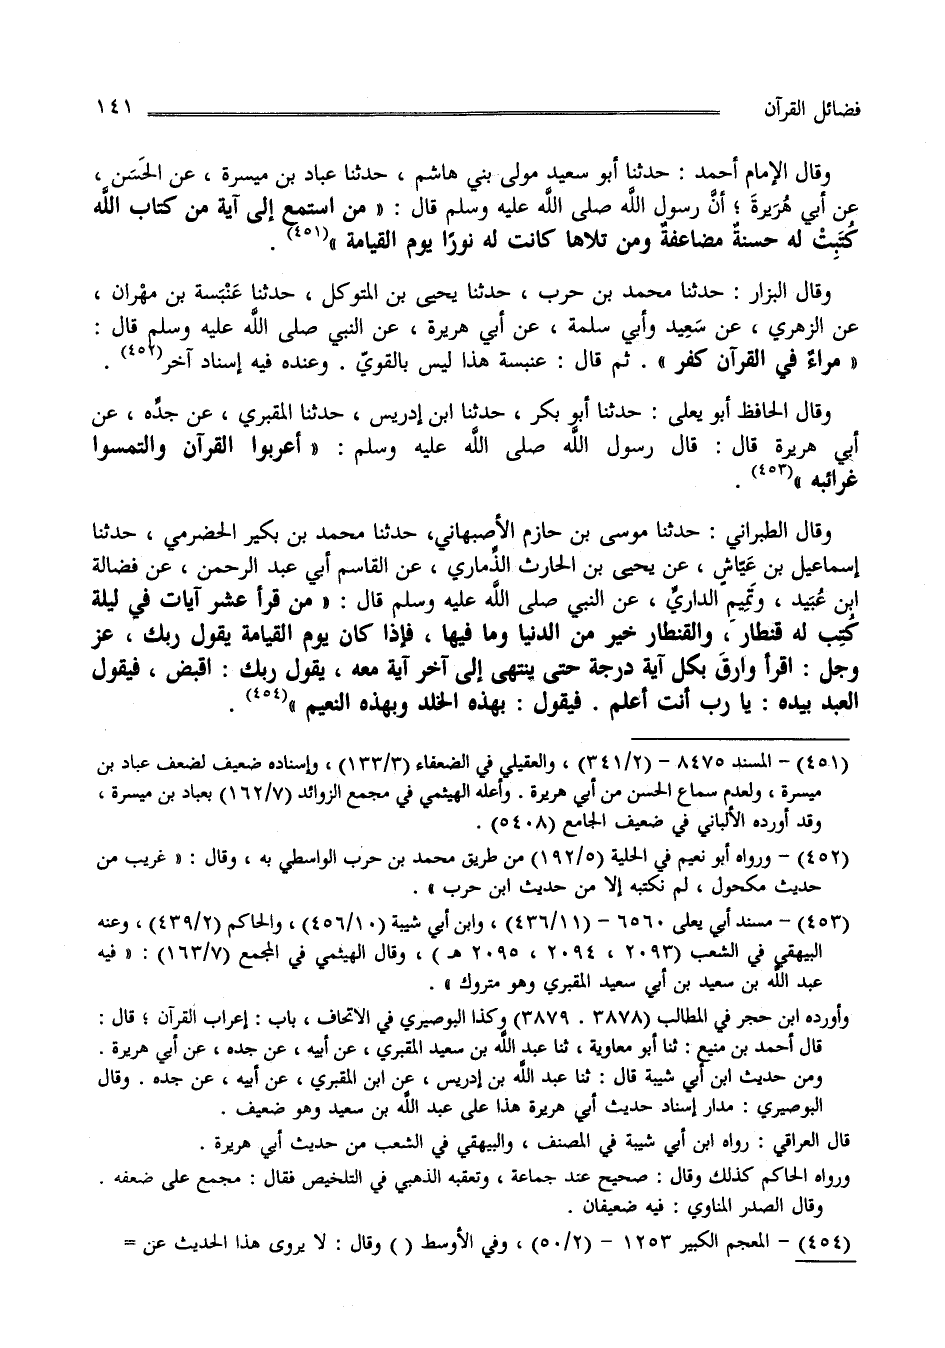 فضائل القرآن ١٤١
وقال الإمام أحمد : حدثنا أبو سعيد مولى بني هاشم ، حدثنا عباد بن ميسرة ، عن الحَسَن ،
عن أبي هُرَيرةَ ؛ أنَّ رسول اللَّه صلى اللَّه عليه وسلم قال : « من استمع إلى آية من كتاب اللَّه
كُتِبَتْ له حسنةٌ مضاعفةٌ ومن تلاها كانت له نورًا يوم القيامة »(٤٥١) .
وقال البزار : حدثنا محمد بن حرب ، حدثنا يحيى بن المتوكل ، حدثنا عَنْبَسة بن مهْران ،
عن الزهري ، عن سَعِيد وأبي سلمة ، عن أبي هريرة ، عن النبي صلى اللَّه عليه وسلم قال :
« مراءٌ في القرآن كفر » . ثم قال : عنبسة هذا ليس بالقويّ . وعنده فيه إسناد آخر(٤٥٢) .
وقال الحافظ أبو يعلى : حدثنا أبو بكر ، حدثنا ابن إدريس ، حدثنا المقبري ، عن جدِّه ، عن
أبي هريرة قال : قال رسول اللَّه صلى اللَّه عليه وسلم : « أعربوا القرآن والتمسوا
غرائبه »(٤٥٣) .
وقال الطبراني : حدثنا موسى بن حازم الأصبهاني، حدثنا محمد بن بكير الحضرمي ، حدثنا
إسماعيل بن عَيّاشٍ ، عن يحيى بن الحارث الذِّماري ، عن القاسم أبي عبد الرحمن ، عن فضالة
ابن عُبَيد ، وتَمِيم الداريِّ ، عن النبي صلى اللَّه عليه وسلم قال : « من قرأ عشر آيات في ليلة
كُتِب له قنطار ، والقنطار خير من الدنيا وما فيها ، فإذا كان يوم القيامة يقول ربك ، عز
وجل : اقرأ وارقَ بكل آية درجة حتى ينتهى إلى آخر آية معه ، يقول ربك : اقبض ، فيقول
العبد بيده : يا رب أنت أعلم . فيقول : بهذه الخلد وبهذه النعيم »(٤٥٤) .
(٤٥١) – المسند ٨٤٧٥ – (٣٤١/٢) ، والعقيلي في الضعفاء (١٣٣/٣) ، وإسناده ضعيف لضعف عباد بن
ميسرة ، ولعدم سماع الحسن من أبي هريرة . وأعله الهيثمي في مجمع الزوائد (١٦٢/٧) بعباد بن ميسرة ،
وقد أورده الألباني في ضعيف الجامع (٥٤٠٨) .
(٤٥٢) – ورواه أبو نعيم في الحلية (١٩٢/٥) من طريق محمد بن حرب الواسطي به ، وقال : « غريب من
حديث مكحول ، لم نكتبه إلا من حديث ابن حرب » .
(٤٥٣) – مسند أبي يعلى ٦٥٦٠ – (٤٣٦/١١) ، وابن أبي شيبة (٤٥٦/١٠) ، والحاكم (٤٣٩/٢) ، وعنه
البيهقي في الشعب (٢٠٩٣ ، ٢٠٩٤ ، ٢٠٩٥ هـ ) ، وقال الهيثمي في المجمع (١٦٣/٧) : « فيه
عبد اللَّه بن سعيد بن أبي سعيد المقبري وهو متروك » .
وأورده ابن حجر في المطالب (٣٨٧٨ . ٣٨٧٩) وكذا البوصيري في الاتحاف ، باب : إعراب القرآن ؛ قال :
قال أحمد بن منيع : ثنا أبو معاوية ، ثنا عبد اللَّه بن سعيد المقبري ، عن أبيه ، عن جده ، عن أبي هريرة .
ومن حديث ابن أبي شيبة قال : ثنا عبد اللَّه بن إدريس ، عن ابن المقبري ، عن أبيه ، عن جده . وقال
البوصيري : مدار إسناد حديث أبي هريرة هذا على عبد اللَّه بن سعيد وهو ضعيف .
قال العراقي : رواه ابن أبي شيبة في المصنف ، والبيهقي في الشعب من حديث أبي هريرة .
ورواه الحاكم كذلك وقال : صحيح عند جماعة ، وتعقبه الذهبي في التلخيص فقال : مجمع على ضعفه .
وقال الصدر المناوي : فيه ضعيفان .
(٤٥٤) – المعجم الكبير ١٢٥٣ – (٥٠/٢) ، وفي الأوسط ( ) وقال : لا يروى هذا الحديث عن =